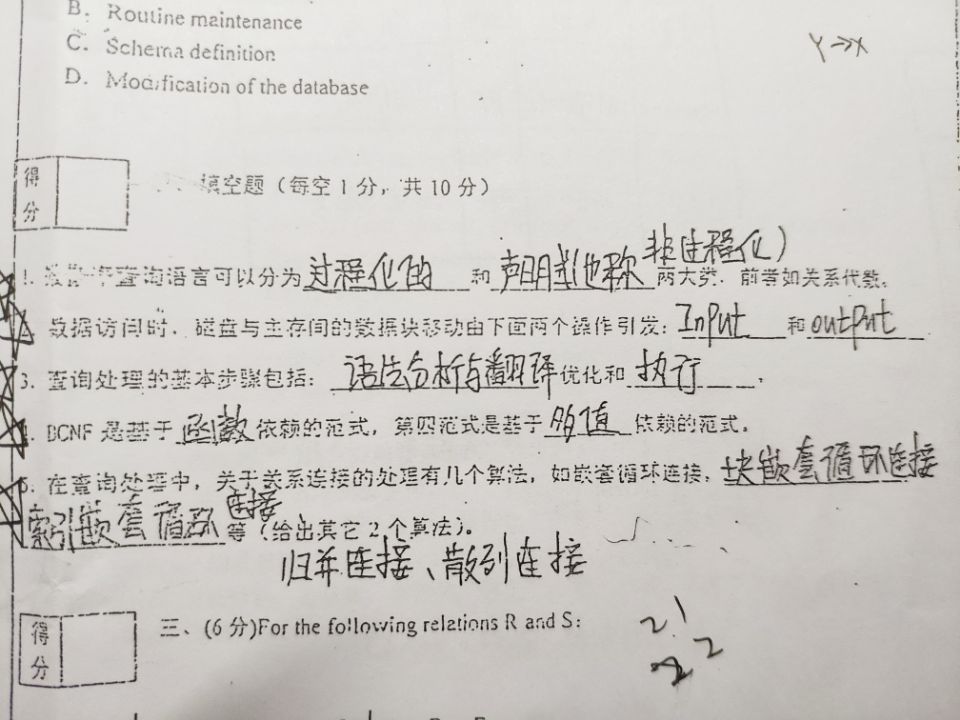 B. Routine maintenance
C. Schema definition
D. Modification of the database
Y→→X
得分
填空题（每空 1 分，共 10 分）
1. 查询语言可以分为 过程化的 和 声明式(也称非过程化) 两大类，前者如关系代数。
数据访问时，磁盘与主存间的数据块移动由下面两个操作引发：Input 和 output
3. 查询处理的基本步骤包括：语法分析与翻译 优化和 执行 .
BCNF 是基于 函数 依赖的范式，第四范式是基于 多值 依赖的范式。
在查询处理中，关于关系连接的处理有几个算法，如嵌套循环连接，块嵌套循环连接
索引嵌套循环连接 等（给出其它 2 个算法）。
归并连接、散列连接
得分
三、(6 分)For the following relations R and S:
2)
2 2